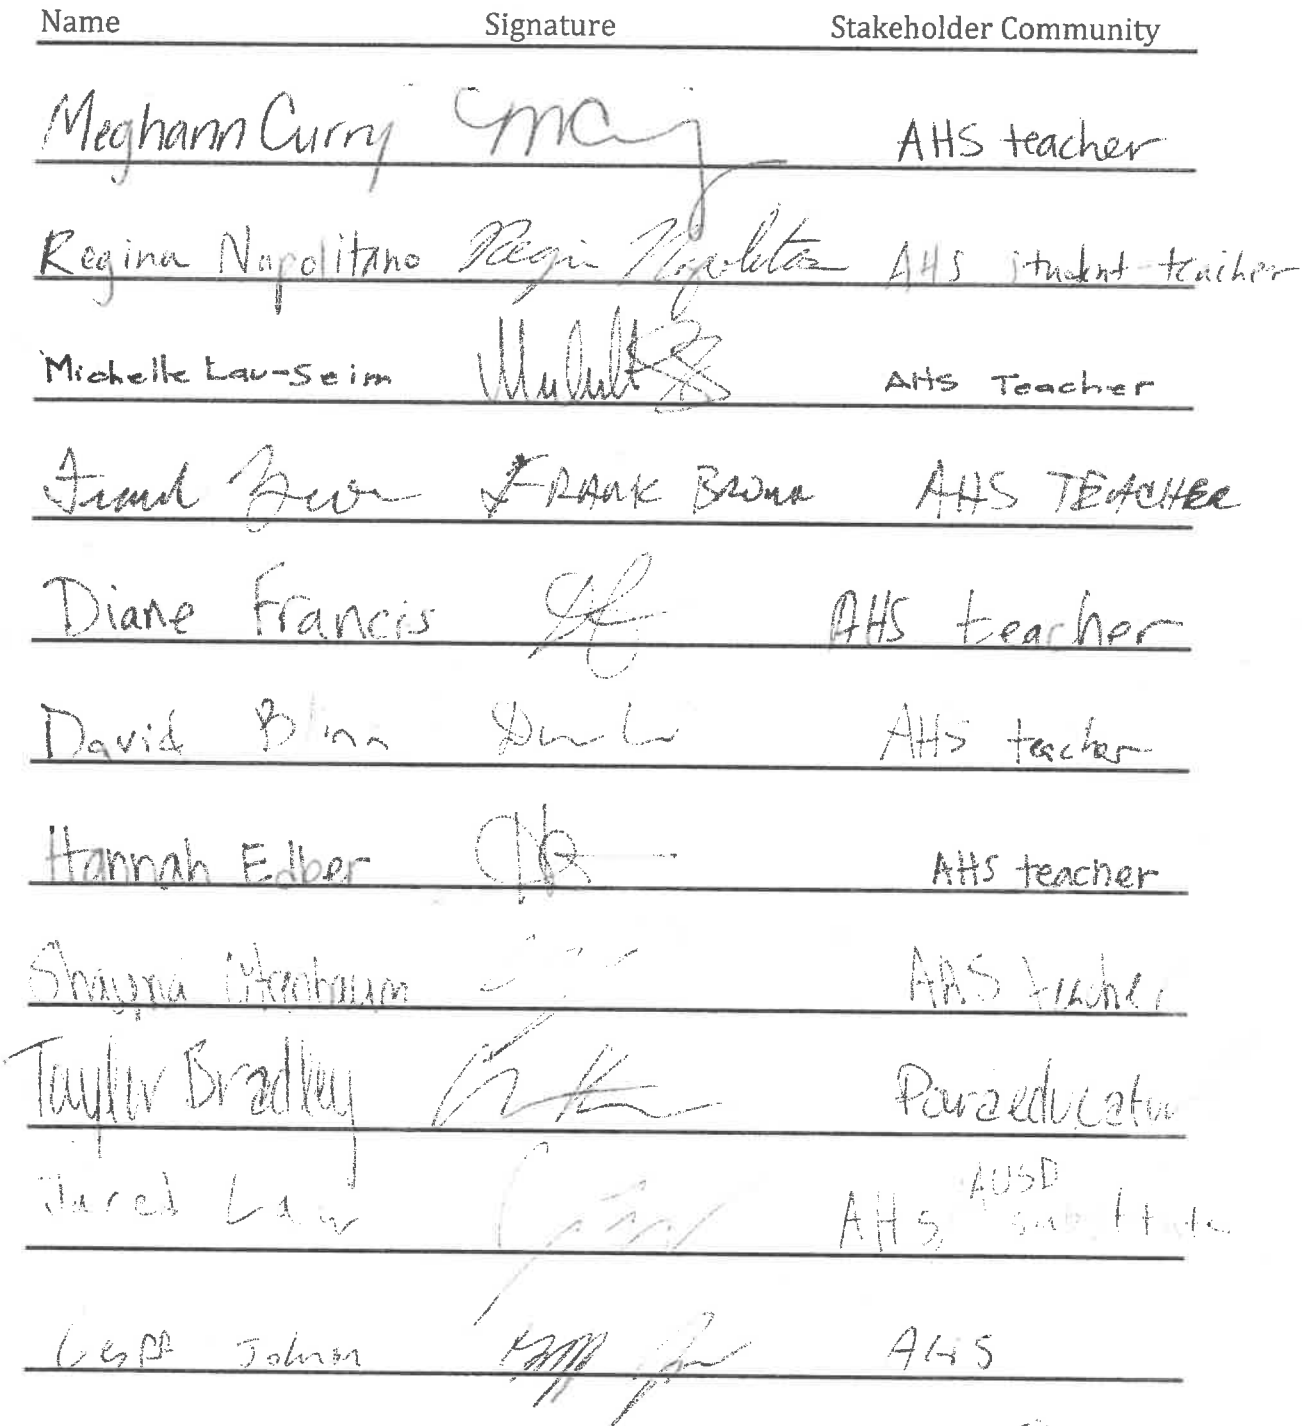 Name Signature Stakeholder Community
Meghann Curry AHS teacher
Regina Napolitano Regin Napolitano AHS student teacher
Michelle Lau-Seim AHS Teacher
Frank Brown FRANK BROWN AHS TEACHER
Diane Francis AHS teacher
David AHS teacher
Hannah Edber AHS teacher
Shayna AHS teacher
Taylor Bradley Paraeducator
Jared Law AHS AUSD substitute
Geoff Johnson AHS